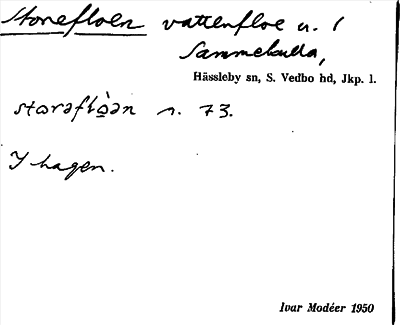 Storefloen vattenfloe n. /
Sammekulla,
Hässleby sn, S. Vedbo hd, Jkp. l.
storəflò̲ən n. 73.
I hagen.
Ivar Modéer 1950